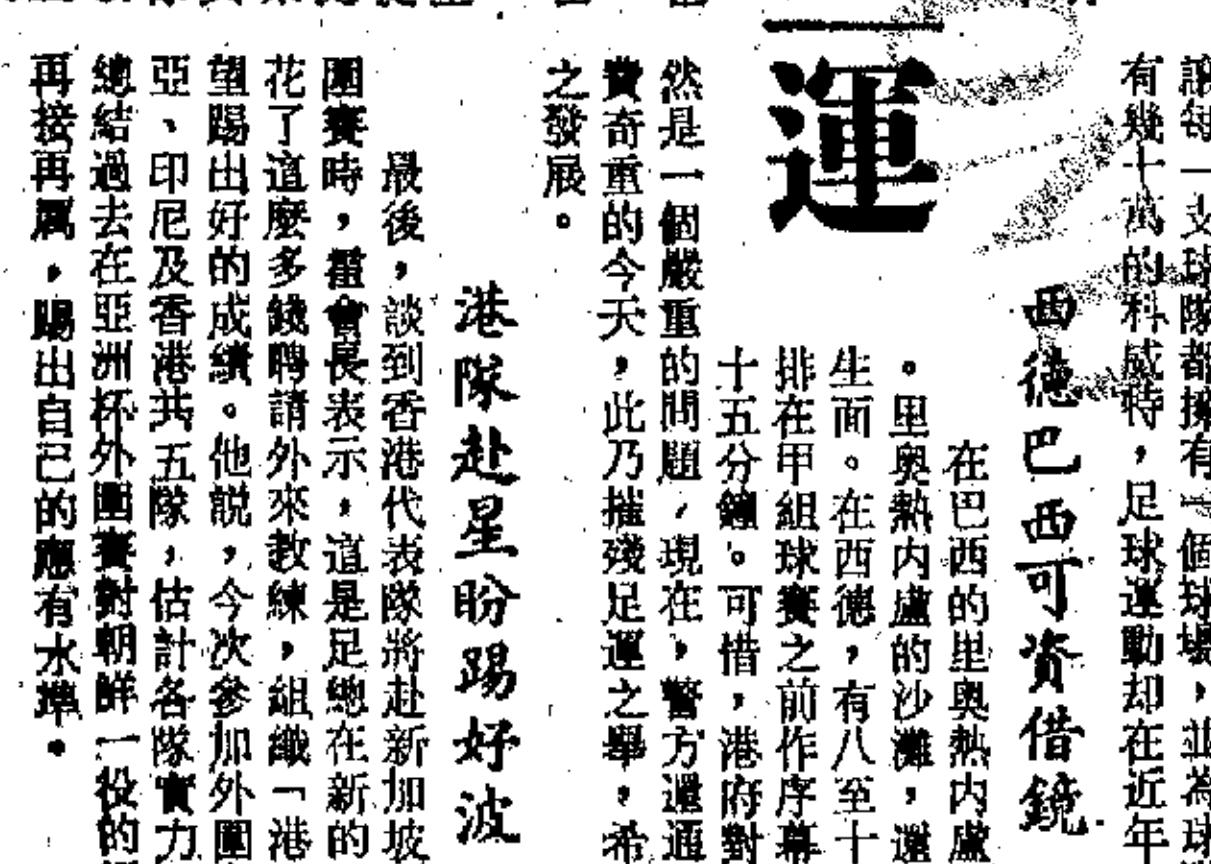 運
讓每一支球隊都擁有一個球場，並為球
有幾十萬的科威特，足球運動却在近年
西德巴西可資借鏡
在巴西的里奧熱內盧
。里奧熱內盧的沙灘，還
生面。在西德，有八至十
排在甲組球賽之前作序幕
十五分鐘。可惜，港府對
然是一個嚴重的問題，現在，警方還通
費奇重的今天，此乃摧殘足運之舉，希
之發展。
港隊赴星盼踢好波
最後，談到香港代表隊將赴新加坡
圍賽時，會長表示，這是足總在新的
花了這麼多錢聘請外來教練，組織「港
望踢出好的成績。他説，今次參加外圍
亞、印尼及香港共五隊，估計各隊實力
總結過去在亞洲杯外圍賽對朝鮮一役的
再接再厲，踢出自己的應有水準。